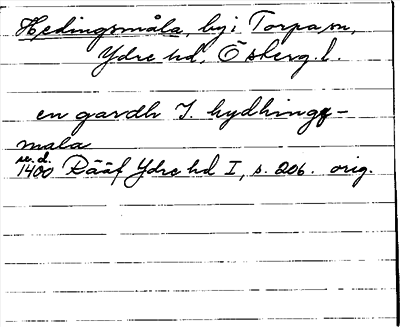 Hedingsmåla, by i Torpa sn,
Ydre hd, Österg. l.
en gardh J. hydhingx-
mala
se. d.
1400 Rääf Ydre hd I, s. 206. orig.